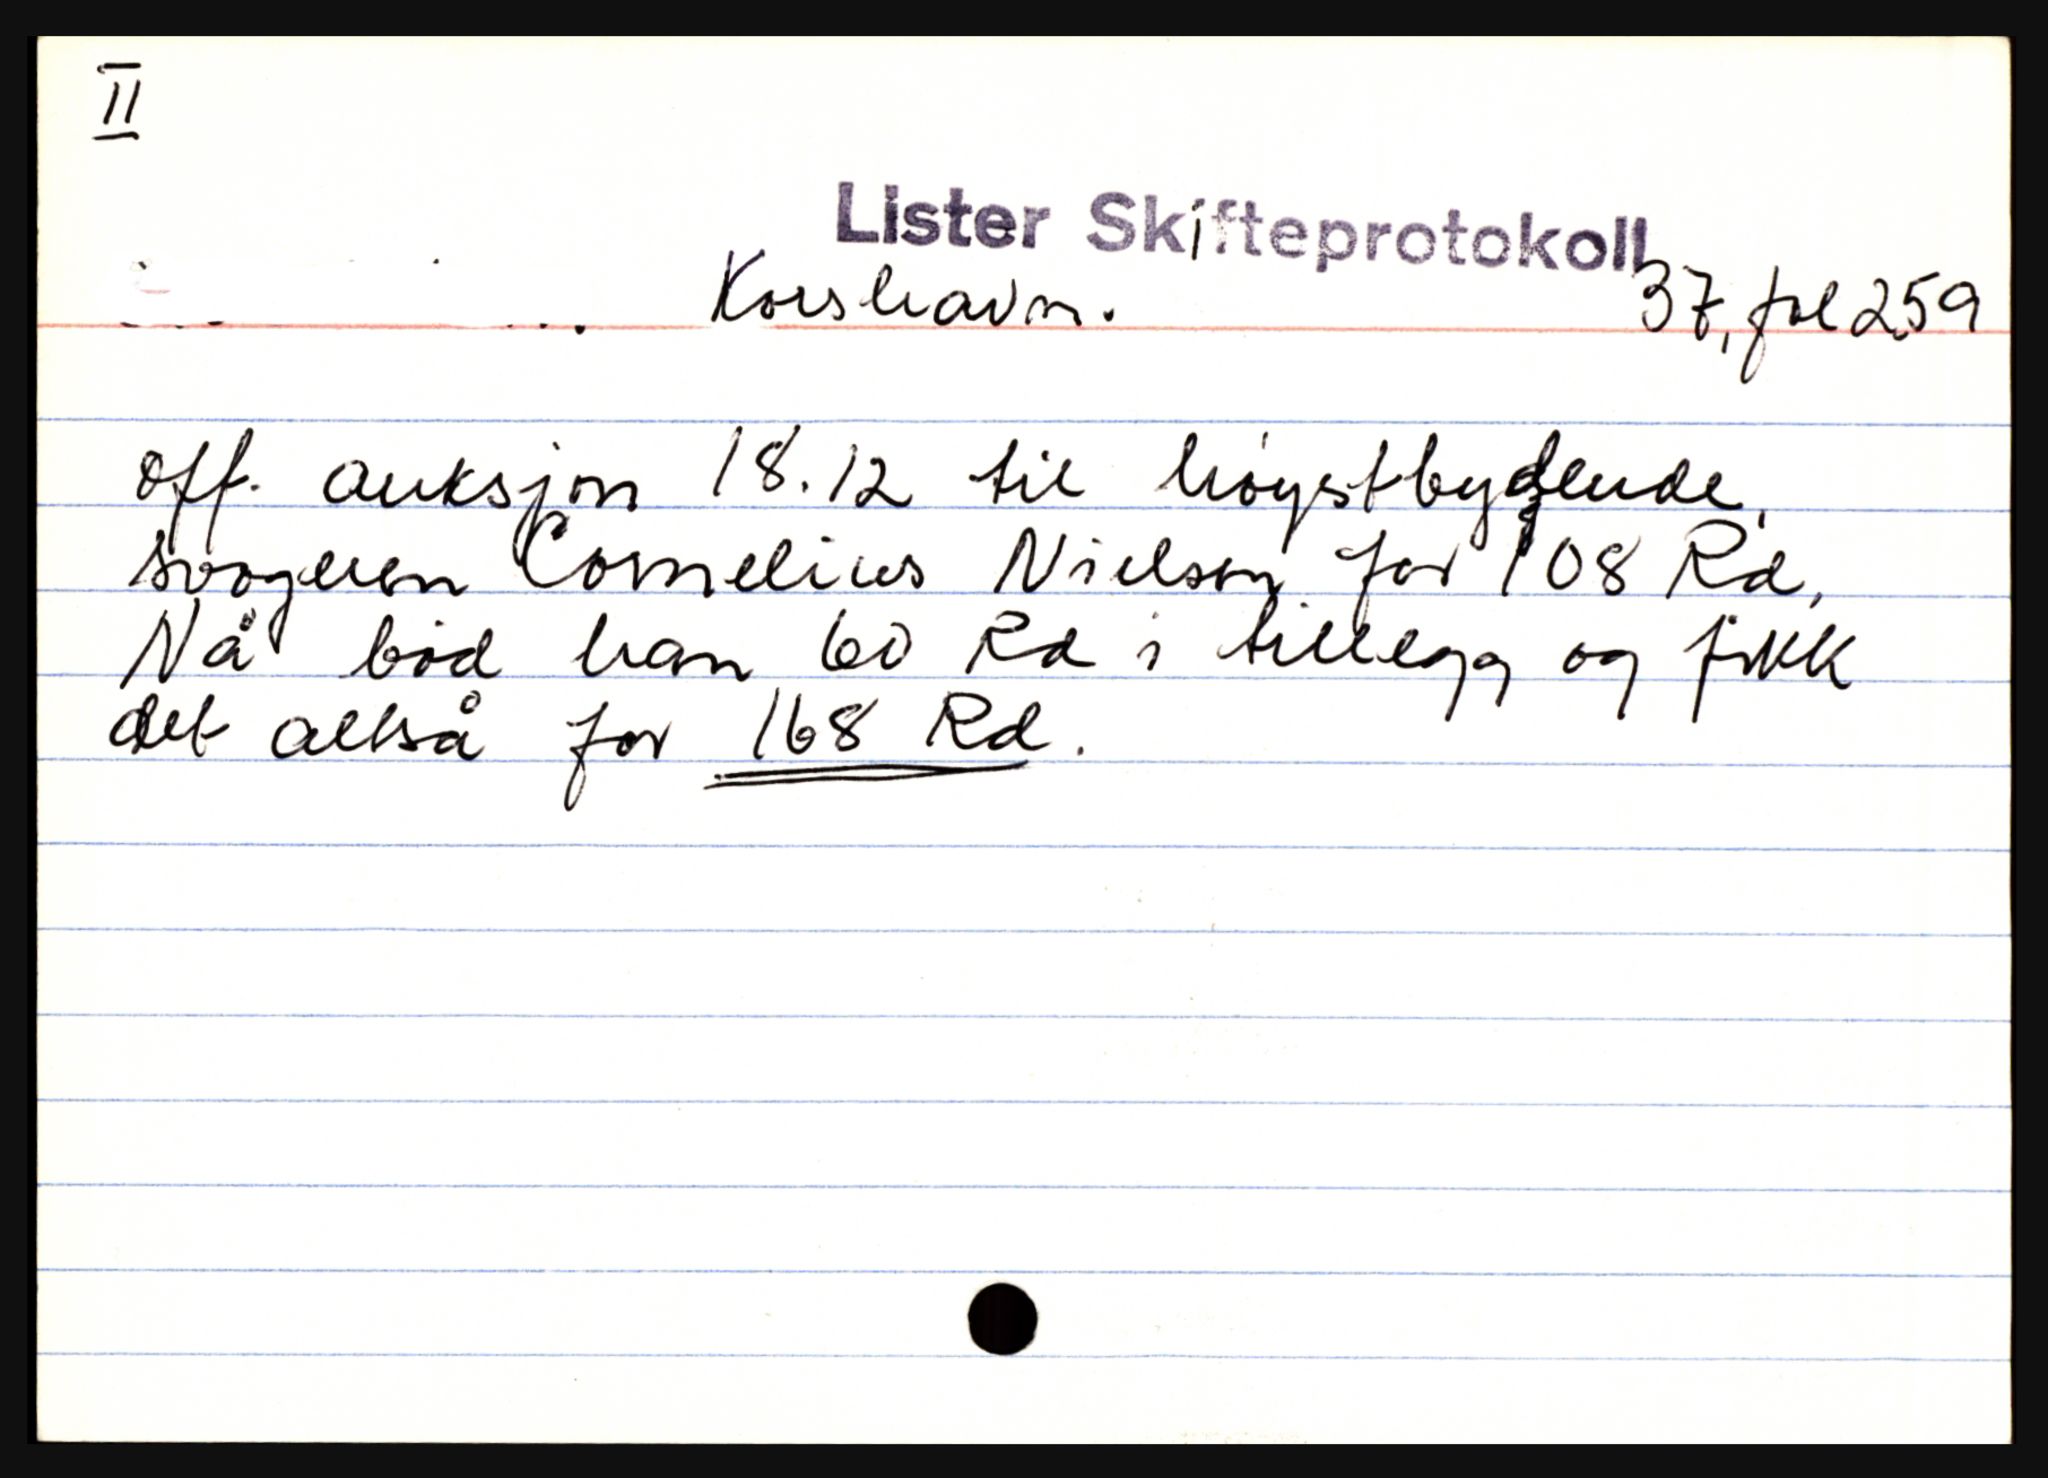 II
Lister Skifteprotokoll
Korshavn. 37, fol 259
off. auksjon 18.12 til høystbydende,
svogeren Cornelius Nielsen for 108 Rd,
Nå bød han 60 Rd i tillegg og fikk
det altså for 168 Rd.